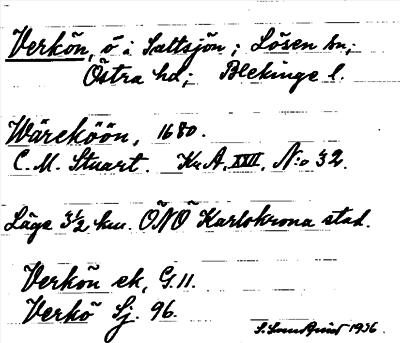 Verkön, ö i Saltsjön; Lösen sn;
Östra hd; Blekinge l.
Wäreköön, 1680.
C. M. Stuart. Kr. A. XXII, N:o 32.
Läge 3 1/2 km. ÖNÖ Karlskrona stad.
Verkön ek, G. 11.
Verkö Sj. 96.
1936